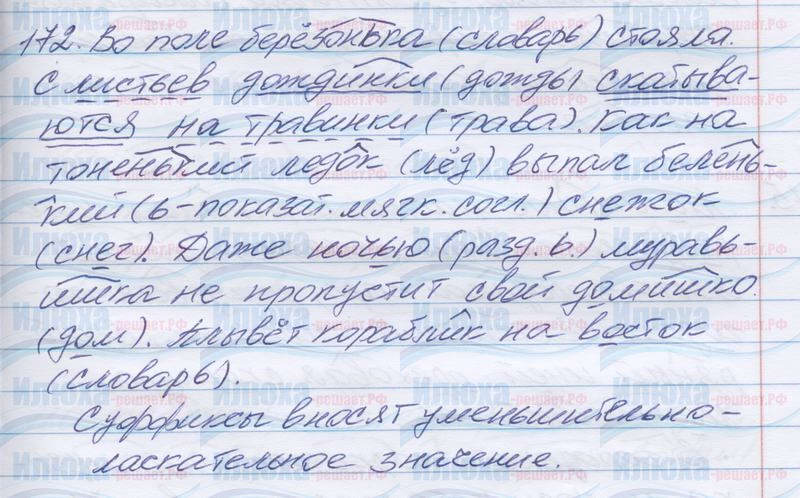 172. Во поле берёзонька (словарь) стояла.
С листьев дождинки (дождь) скатыва-
ются на травинки (трава). Как на
тоненький ледок (лёд) выпал белень-
кий (ь-показат. мягк. согл.) снежок
(снег). Даже ночью (разд. ь.) муравь-
ишка не пропустит свой домишко.
(дом). Плывёт кораблик на восток
(словарь).
Суффиксы вносят уменьшительно-
ласкательное значение.